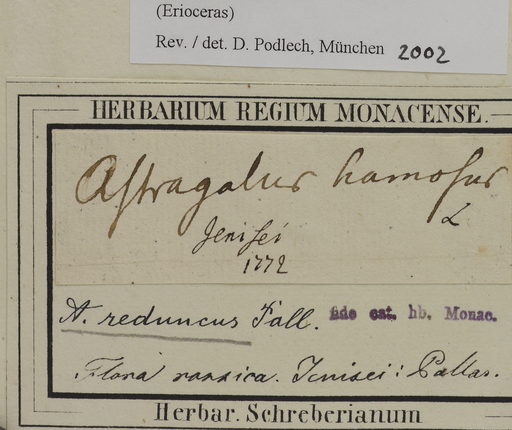 (Erioceras)
Rev. / det. D. Podlech, München 2002
HERBARIUM REGIUM MONACENSE.
Astragalus hamosus
L
Jenisei
1772
A. reduncus Pall. fide cat. hb. Monac.
Flora rossica. Jenisei: Pallas.
Herbar. Schreberianum